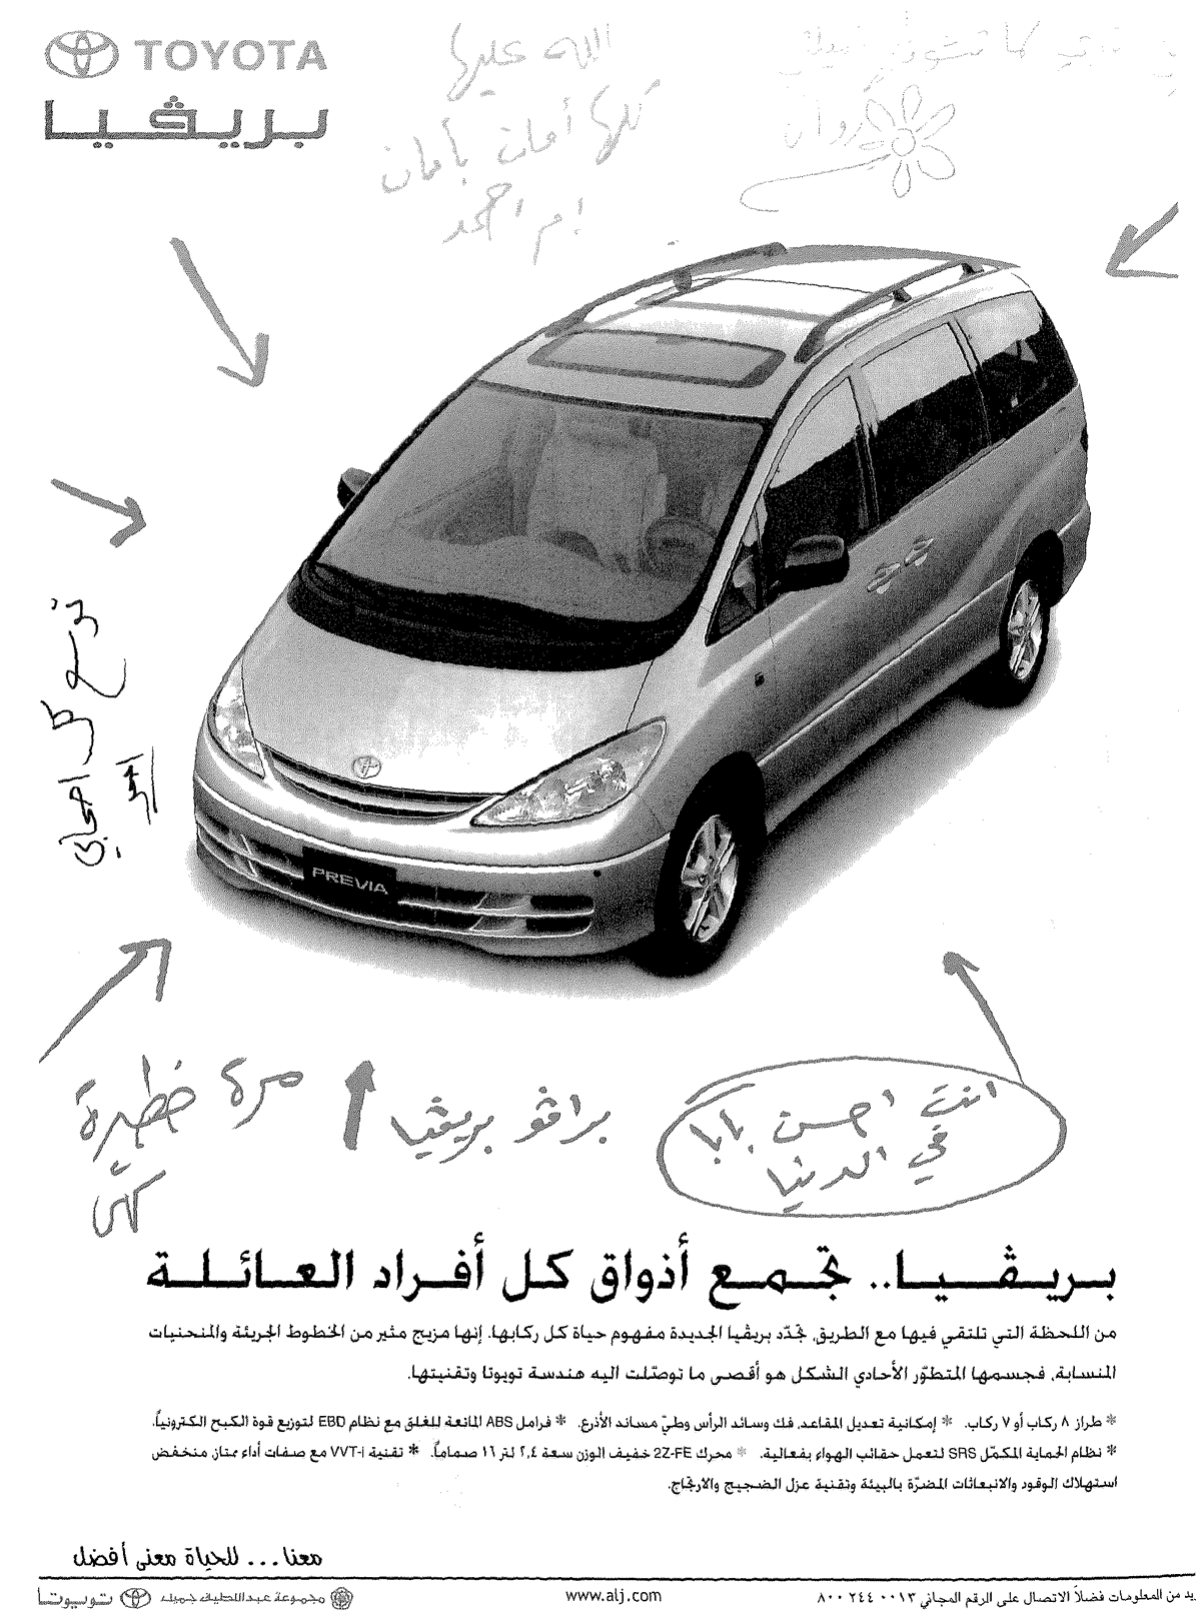 TOYOTA
بريڤيا
الله عليها
كلها أمان بأمان
ام احمد
كما تشوفني
روان
توسع كل اصحابي
احمد
PREVIA
مرة خطيرة
كلّي
براڤو بريڤيا
انت احسن بابا
في الدنيا
بريڤيا.. تجمع أذواق كل أفراد العائلة
من اللحظة التي تلتقي فيها مع الطريق، تجدّد بريڤيا الجديدة مفهوم حياة كل ركابها. إنها مزيج مثير من الخطوط الجريئة والمنحنيات
المنسابة، فجسمها المتطوّر الأحادي الشكل هو أقصى ما توصّلت اليه هندسة تويوتا وتقنيتها.
* طراز ٨ ركاب أو ٧ ركاب. * إمكانية تعديل المقاعد، فك وسائد الرأس وطيّ مساند الأذرع. * فرامل ABS المانعة للغلق مع نظام EBD لتوزيع قوة الكبح الكترونياً.
* نظام الحماية المكمّل SRS لتعمل حقائب الهواء بفعالية. * محرك 2Z-FE خفيف الوزن سعة ٢,٤ لتر ١٦ صماماً. * تقنية VVT-i مع صفات أداء ممتاز، منخفض
استهلاك الوقود والانبعاثات المضرّة بالبيئة وتقنية عزل الضجيج والارتجاج.
معنا... للحياة معنى أفضل
يد من المعلومات فضلاً الاتصال على الرقم المجاني ٨٠٠ ٢٤٤ ٠٠١٣
www.alj.com
مجموعة عبد اللطيف جميل
تويوتا